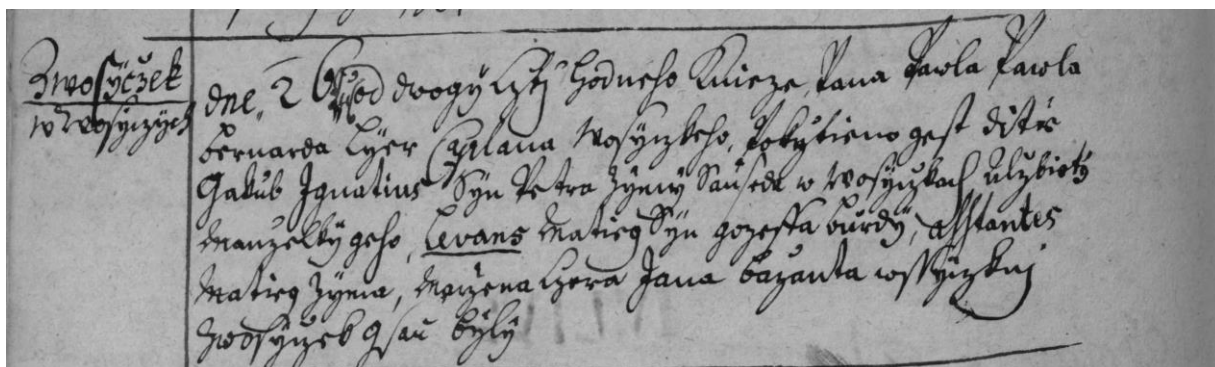 Zwosyczek
w Wosyczych
dne 2 od dwogy Czti hodneho Knieze Pana Pawla Pawla
bernarda Lyer Caplana Wosyczkeho, Pokrztieno gest ditie
Gakub Ignatius Syn Petra Zymy Sauseda w Wosyczkach Alzbiety
Manzelky geho, Levans Matieg Syn gozeffa burdy, assstantes
Matieg Zyma, Marzena Czera Jana bazanta wssyczknj
Zwosyczek gsau byly